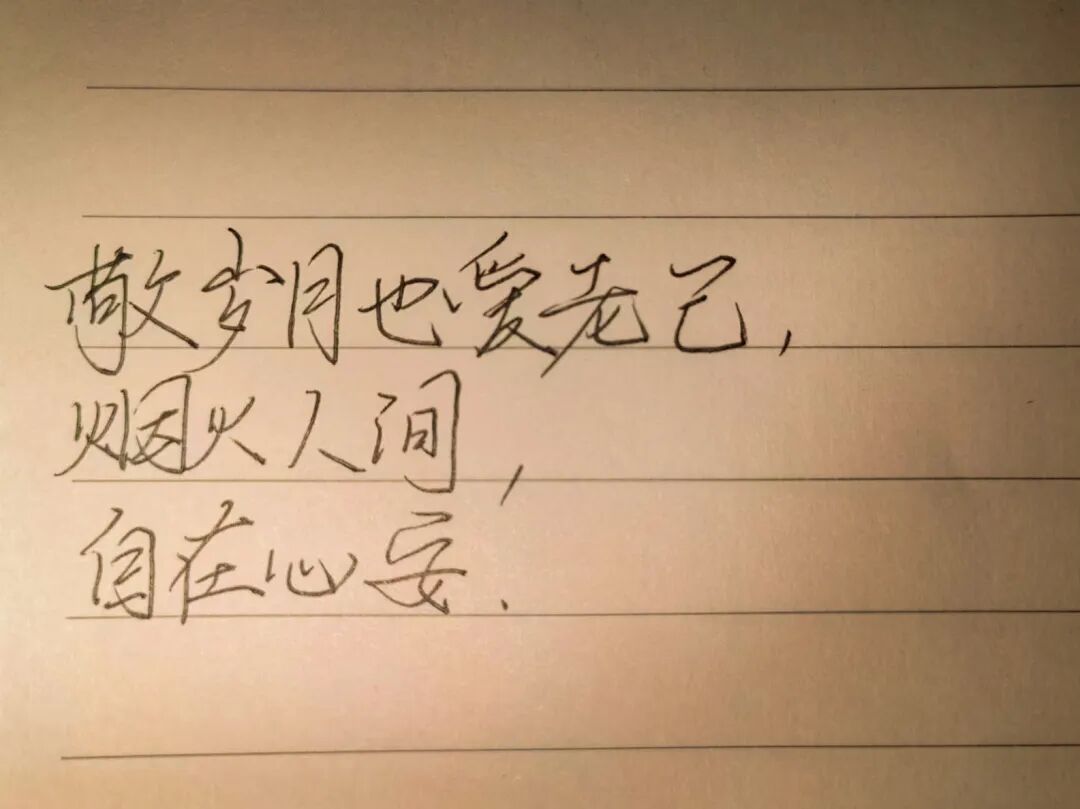 敬岁月也爱老己,
烟火人间,
自在心安.